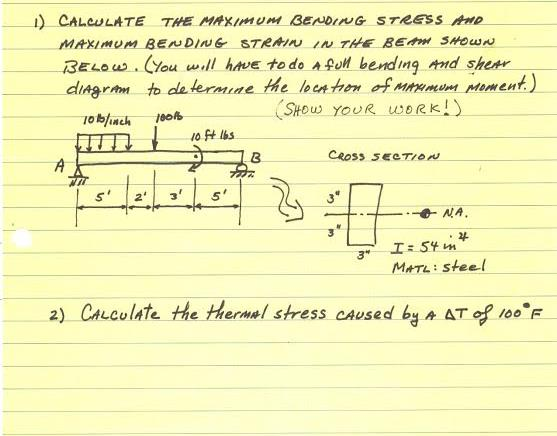 1) CALCULATE THE MAXIMUM BENDING STRESS AND
MAXIMUM BENDING STRAIN IN THE BEAM SHOWN
BELOW. (You will HAVE to do A full bending AND shear
diagram to determine the location of MAXIMUM Moment.)
(SHOW YOUR WORK!)
10 lb/inch
100 lb
10 ft lbs
A
B
5'
2'
3'
5'
CROSS SECTION
3"
3"
3"
N.A.
I = 54 in⁴
MATL: steel
2) CALCULATE the thermal stress CAUSED by A ΔT of 100°F